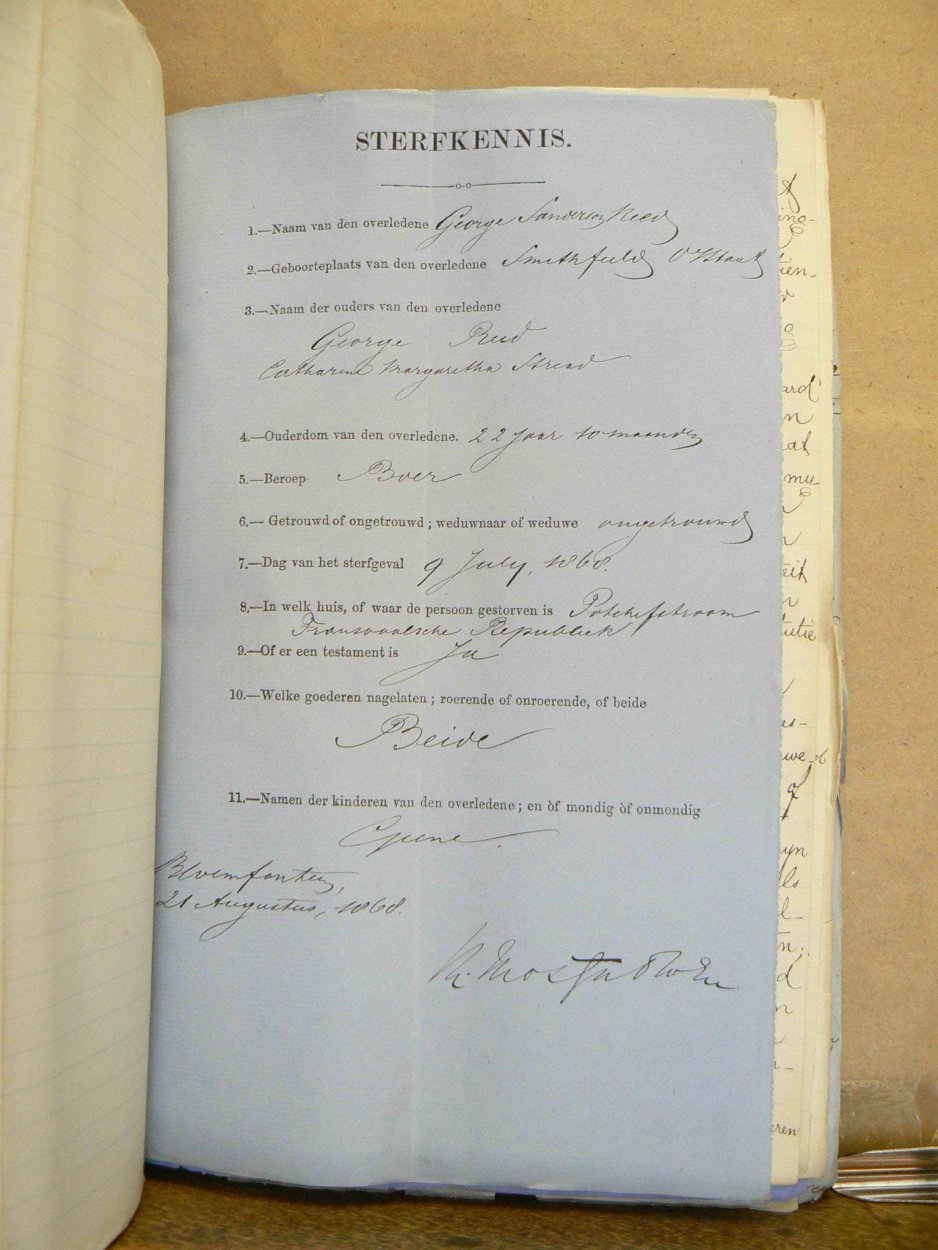 STERFKENNIS.
1.—Naam van den overledene George Sanderson Reed
2.—Geboorteplaats van den overledene Smithfield O V Staat
3.—Naam der ouders van den overledene
George Reid
Catharine Margaretha
4.—Ouderdom van den overledene. 22 Jaar 10 maanden
5.—Beroep Boer
6.—Getrouwd of ongetrouwd; weduwnaar of weduwe ongetrouwd
7.—Dag van het sterfgeval 9 July, 1868.
8.—In welk huis, of waar de persoon gestorven is Potchefstroom
Transvaalsche Republiek
9.—Of er een testament is Ja
10.—Welke goederen nagelaten; roerende of onroerende, of beide
Beide
11.—Namen der kinderen van den overledene; en òf mondig òf onmondig
Geene.
Bloemfontein,
21 Augustus, 1868.